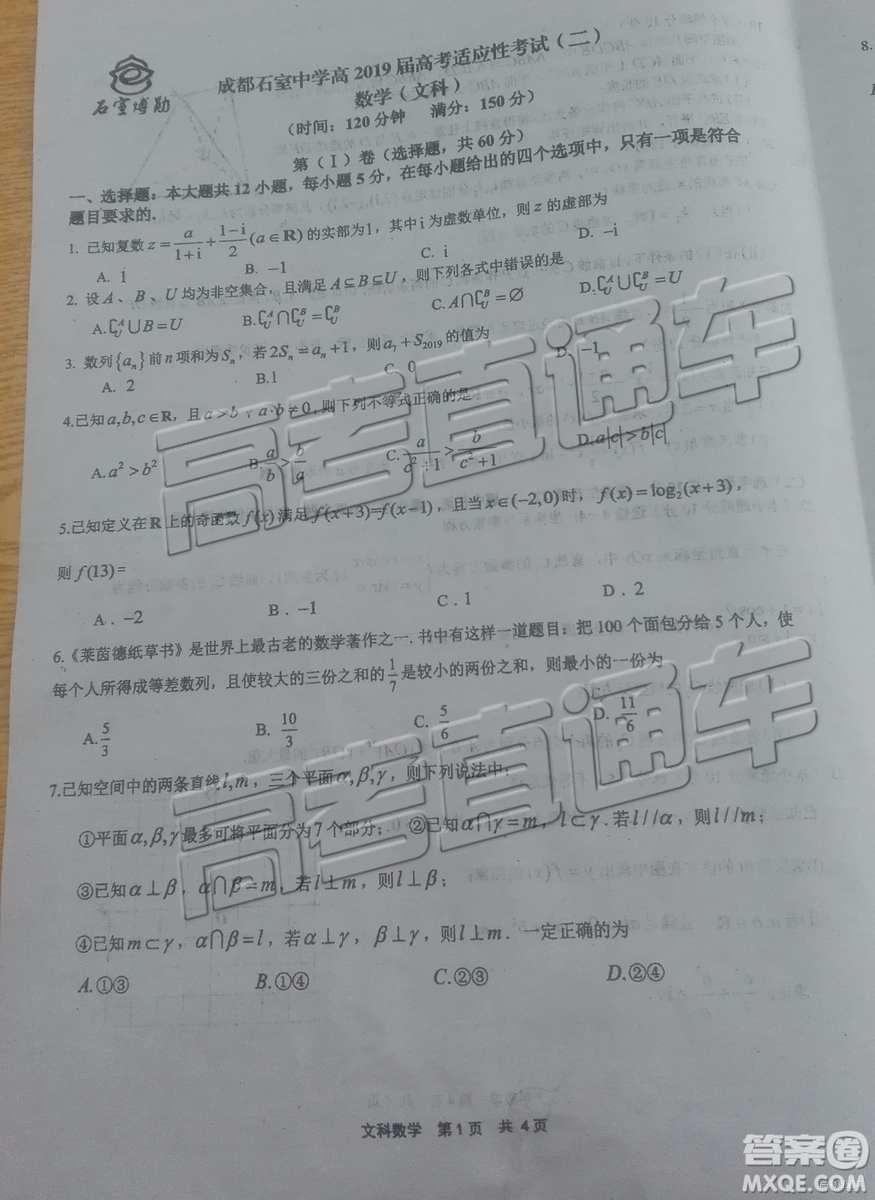 石室博勋
成都石室中学高 2019 届高考适应性考试（二）
数学（文科）
（时间：120 分钟　满分：150 分）
第（Ⅰ）卷（选择题，共 60 分）
一、选择题：本大题共 12 小题，每小题 5 分，在每小题给出的四个选项中，只有一项是符合
题目要求的.
1. 已知复数 z = a/(1+i) + (1−i)/2 (a∈R) 的实部为1，其中 i 为虚数单位，则 z 的虚部为
A. i　B. −1　C. i　D. −i
2. 设 A、B、U 均为非空集合，且满足 A⊆B⊆U，则下列各式中错误的是
A. ∁_U^A∪B=U　B. ∁_U^A∩∁_U^B=∁_U^B　C. A∩∁_U^B=∅　D. ∁_U^A∪∁_U^B=U
3. 数列{a_n}前 n 项和为 S_n，若 2S_n=a_n+1，则 a_7+S_2019 的值为
A. 2　B.1　C. 0　D. −1
4.已知 a,b,c∈R，且 a>b，a·b≠0，则下列不等式正确的是
A. a²>b²　B. a/b>b/a　C. a/(c²+1)>b/(c²+1)　D. a|c|>b|c|
5.已知定义在 R 上的奇函数 f(x) 满足 f(x+3)=f(x−1)，且当 x∈(−2,0) 时，f(x)=log₂(x+3)，
则 f(13)=
A．−2　B．−1　C．1　D．2
6.《莱茵德纸草书》是世界上最古老的数学著作之一.书中有这样一道题目：把 100 个面包分给 5 个人，使
每个人所得成等差数列，且使较大的三份之和的 1/7 是较小的两份之和，则最小的一份为
A. 5/3　B. 10/3　C. 5/6　D. 11/6
7.已知空间中的两条直线 l,m，三个平面 α,β,γ，则下列说法中：
①平面 α,β,γ 最多可将平面分为 7 个部分；②已知 α∩γ=m，l⊂γ.若 l//α，则 l//m；
③已知 α⊥β，α∩β=m，若 l⊥m，则 l⊥β；
④已知 m⊂γ，α∩β=l，若 α⊥γ，β⊥γ，则 l⊥m．一定正确的为
A.①③　B.①④　C.②③　D.②④
文科数学　第 1 页　共 4 页
8.
高考直通车
高考直通车
答案圈
MXQE.COM